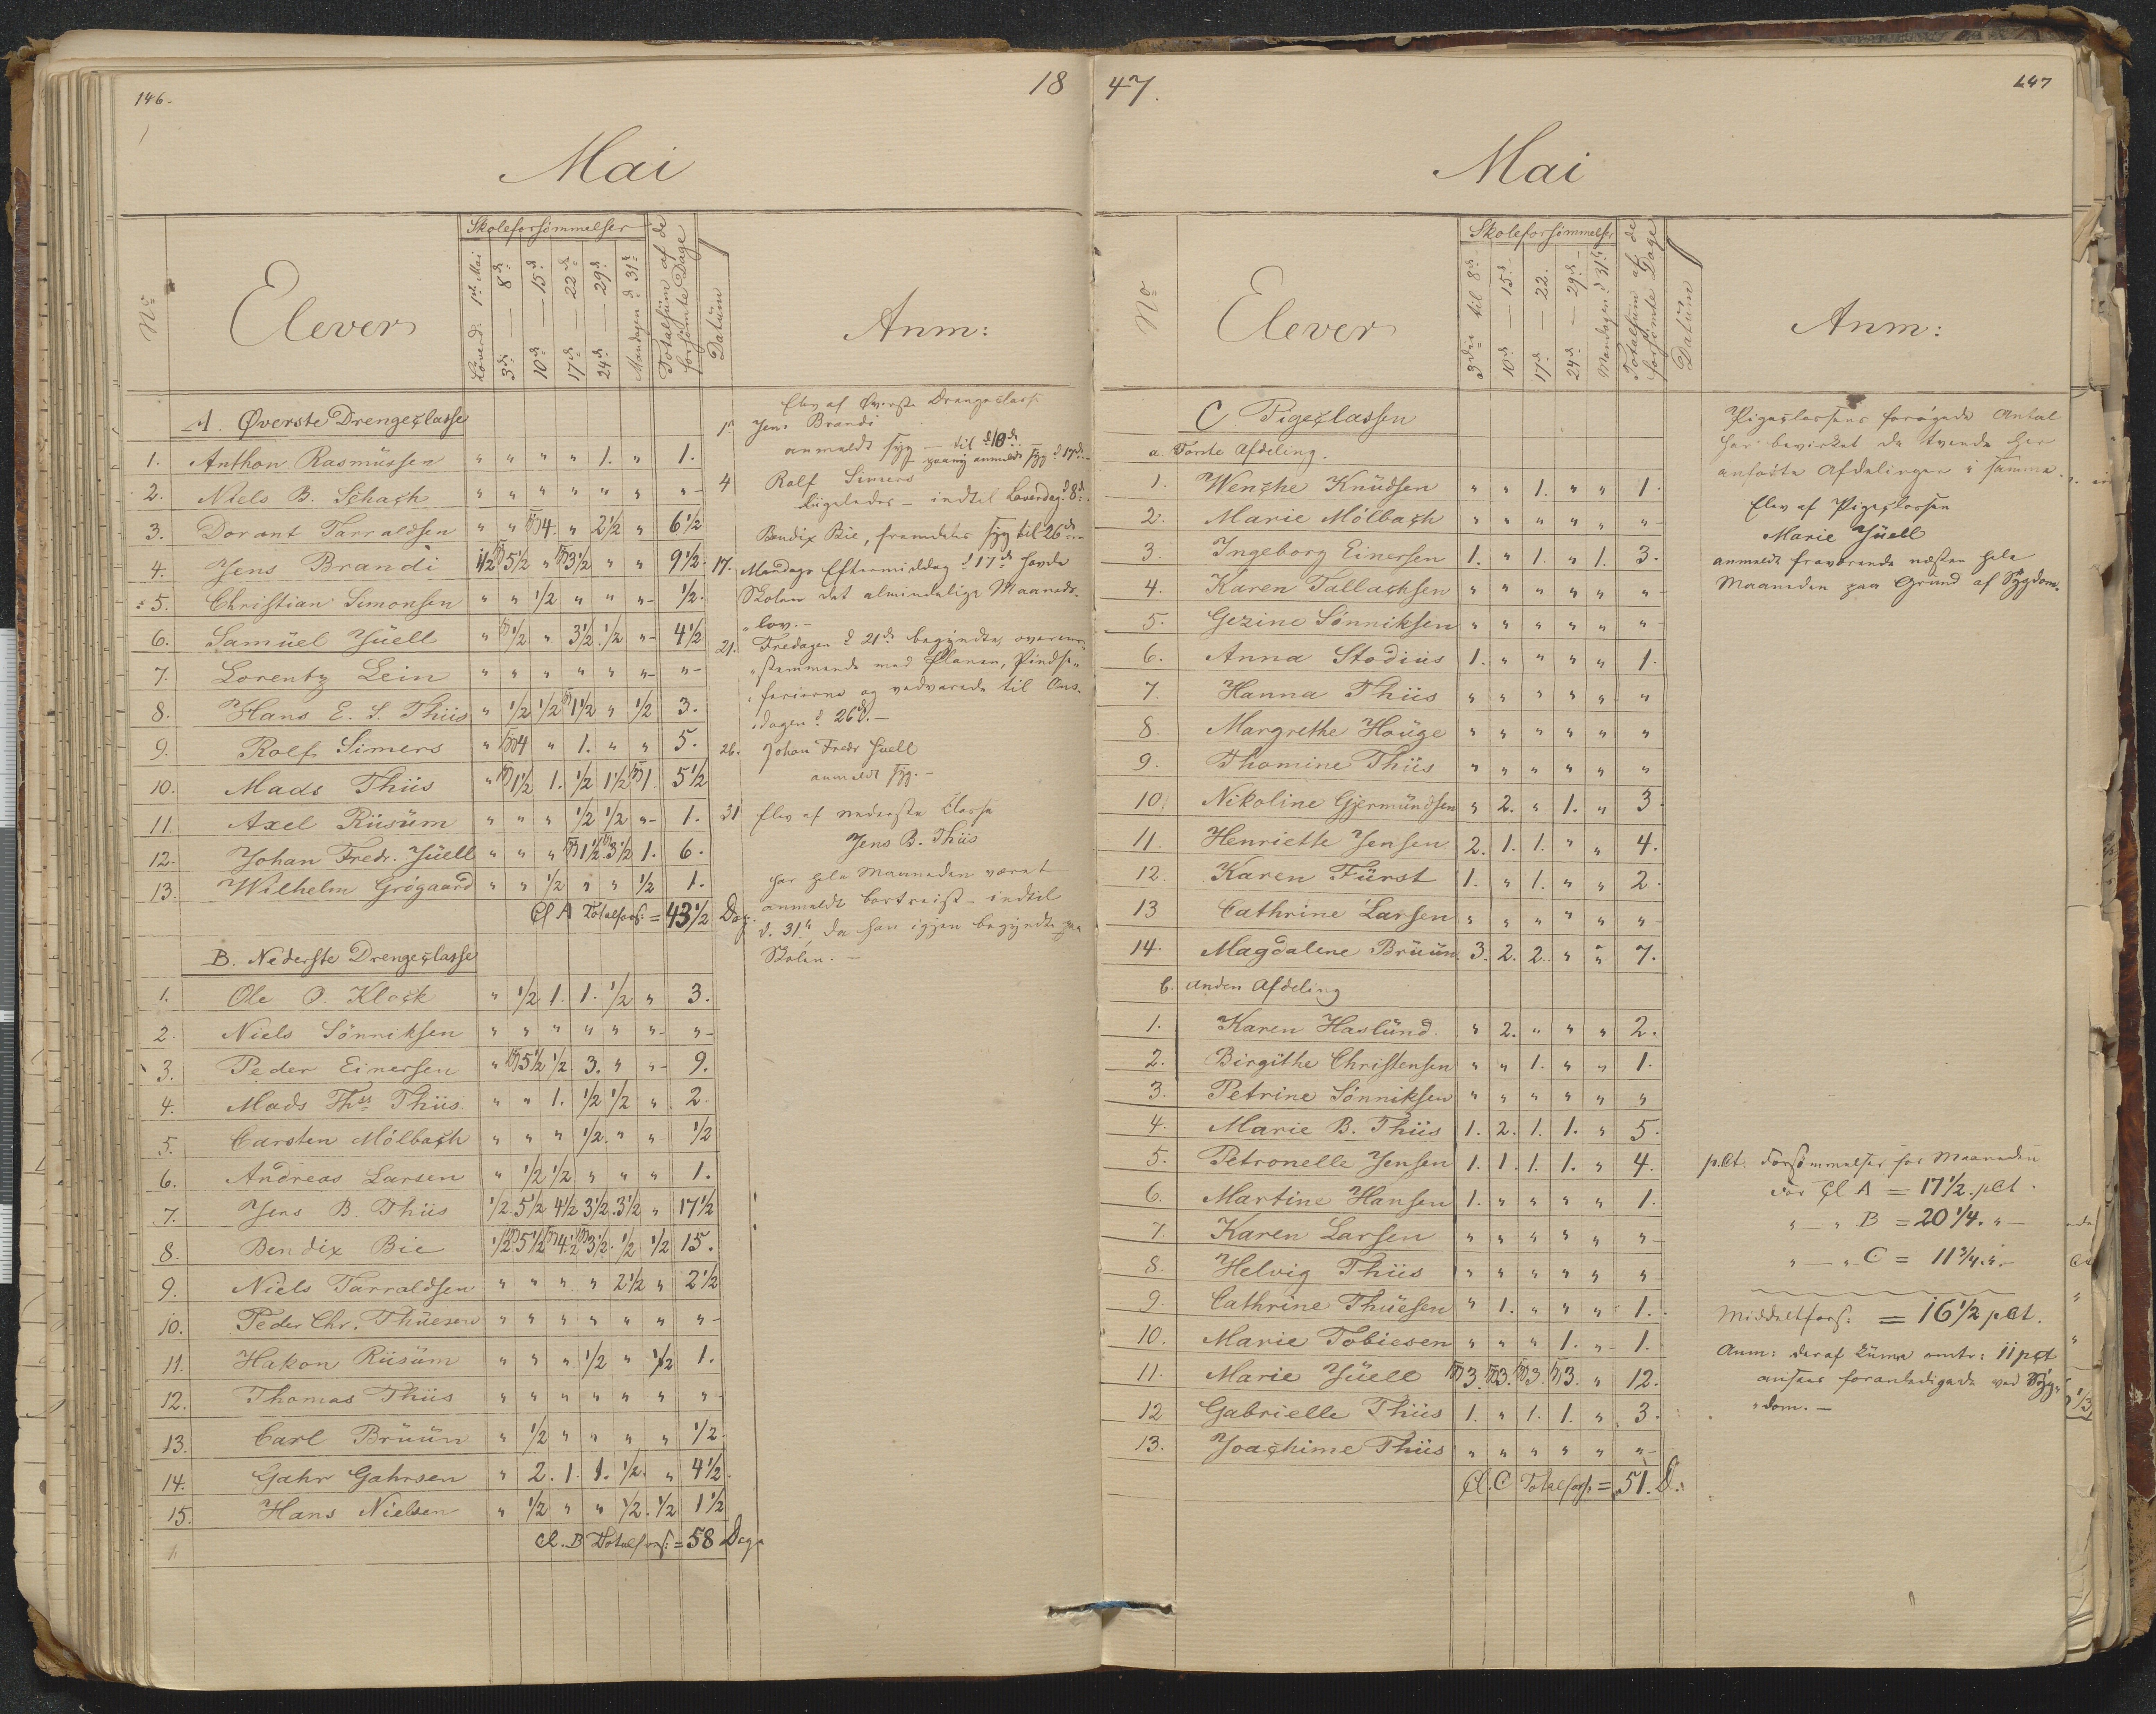 146.
18
Mai
No
Elever
Skoleforsömmelser
Löverd. 1ste Mai
3de — 8de
10de — 15de
17de — 22de
24de — 29de
Mandagen d. 31te
Totalsüm af de forsömte Dage
Datüm
Anm:
A. Øverste Drengeclasse
1. Anthon Rasmüssen " " " " 1. " 1.
2. Niels B. Schach " " " " " " "
3. Dorant Tarraldsen " " 4. " 2½ " 6½
4. Jens Brandi ½ 5½ " 3½ " " 9½
5. Christian Simonsen " " ½ " " " ½.
6. Samüel Jüell " ½ " 3½ ½ " 4½
7. Lorentz Lein " " " " " " "
8. Hans E. S. Thiis " ½ ½ 1½ " ½ 3.
9. Rolf Simers " 4 " 1. " " 5.
10. Mads Thiis " 1½ 1. ½ 1½ 1. 5½
11. Axel Riisüm " " " ½ ½ " 1.
12. Johan Fredr. Jüell " " " 1½ 3½ 1. 6.
13. Wilhelm Grögaard " " ½ " " ½ 1.
Cl A Totalfors: = 43½ Dag.
B. Nederste Drengeclasse
1. Ole O. Klock " ½ 1. 1. ½ " 3.
2. Niels Sönniksen " " " " " " "
3. Peder Einersen " 5½ ½ 3. " " 9.
4. Mads Ths. Thiis " " 1. ½ ½ " 2.
5. Carsten Mölbach " " " ½ " " ½
6. Andreas Larsen " ½ ½ " " " 1.
7. Jens B. Thiis ½ 5½ 4½ 3½ 3½ " 17½
8. Bendix Bie ½ 5½ 4½ 3½ ½ ½ 15.
9. Niels Tarraldsen " " " " 2½ " 2½
10. Peder Chr. Thüesen " " " " " " "
11. Hakon Riisüm " " " ½ " ½ 1.
12. Thomas Thiis " " " " " " "
13. Carl Brüün " ½ " " " " ½
14. Gahr Gahrsen " 2. 1. 1. ½ " 4½
15. Hans Nielsen " ½ " " ½ ½ 1½
Cl. B Totalfors: = 58 Dage
Elev af Øverste Drengeclasse
1. Jens Brandi
anmeldt syg — til d. 10de
anmeldt syg d. 17de
4 Rolf Simers
ligeledes — indtil Løverdag d. 8de
Bendix Bie, fremdeles syg til 26de
17. Mandags Eftermiddag d. 17de havde
Skolen det almindelige Maaneds-
lov. —
21. Fredagen d. 21de begyndte, overens-
stemmende med Planen, Pindse-
ferierne og vedvarede til Ons-
dagen d. 26de. —
26. Johan Fredr Juell
anmeldt syg. —
31 Elev af nederste Classe
Jens B. Thiis
har hele Maaneden været
anmeldt bortreist — indtil
d. 31te, da han igjen begyndte paa
Skolen. —
47.
147
Mai
No
Elever
Skoleforsömmelser
3die til 8de
10de — 15de
17de — 22.
24de — 29de
Mandagen d. 31te
Totalsüm af de forsömte Dage
Datüm
Anm:
C Pigeclassen
a. Förste Afdeling.
1. Wenche Knüdsen " " 1. " " 1.
2. Marie Mölbach " " " " " "
3. Ingeborg Einersen 1. " 1. " 1. 3.
4. Karen Tallachsen " " " " " "
5. Gezine Sönniksen " " " " " "
6. Anna Stodiüs 1. " " " " 1.
7. Hanna Thiis " " " " " "
8. Margrethe Houge " " " " " "
9. Thomine Thiis " " " " " "
10. Nikoline Gjermündsen " 2. " 1. " 3
11. Henriette Jensen 2. 1. 1. " " 4.
12. Karen Fürst 1. " 1. " " 2.
13 Cathrine Larsen " " " " " "
14. Magdalene Brüün 3. 2. 2. " " 7.
b. Anden Afdeling
1. Karen Haslünd. " 2. " " " 2.
2. Birgithe Christensen " " 1. " " 1.
3. Petrine Sönniksen " " " " " "
4. Marie B. Thiis 1. 2. 1. 1. " 5.
5. Petronelle Jensen 1. 1. 1. 1. " 4.
6. Martine Hansen 1. " " " " 1.
7. Karen Larsen " " " " " "
8. Helvig Thiis " " " " " "
9. Cathrine Thüesen " 1. " " " 1.
10. Marie Tobiesen " " " 1. " 1.
11. Marie Jüell 3. 3. 3. 3. " 12.
12 Gabrielle Thiis 1. " 1. 1. " 3.
13. Joachime Thiis " " " " " "
Cl. C Totalfors = 51. D.
Pigeclassens forøgede Antal
har bevirket de tvende her
anførte Afdelinger i samme.
Elev af Pigeclassen
Marie Jüell
anmeldt fraværende næsten hele
Maaneden paa Grund af Sygdom.
pCt. Forsömmelser for Maaneden
For Cl A = 17½ pCt.
" — " B = 20¼. " —
" — " C = 11¾. " —
Middeltfors: = 16½ pCt.
Anm: deraf kunne omtr: 11 pCt
ansees foranledigede ved Syg-
dom. —